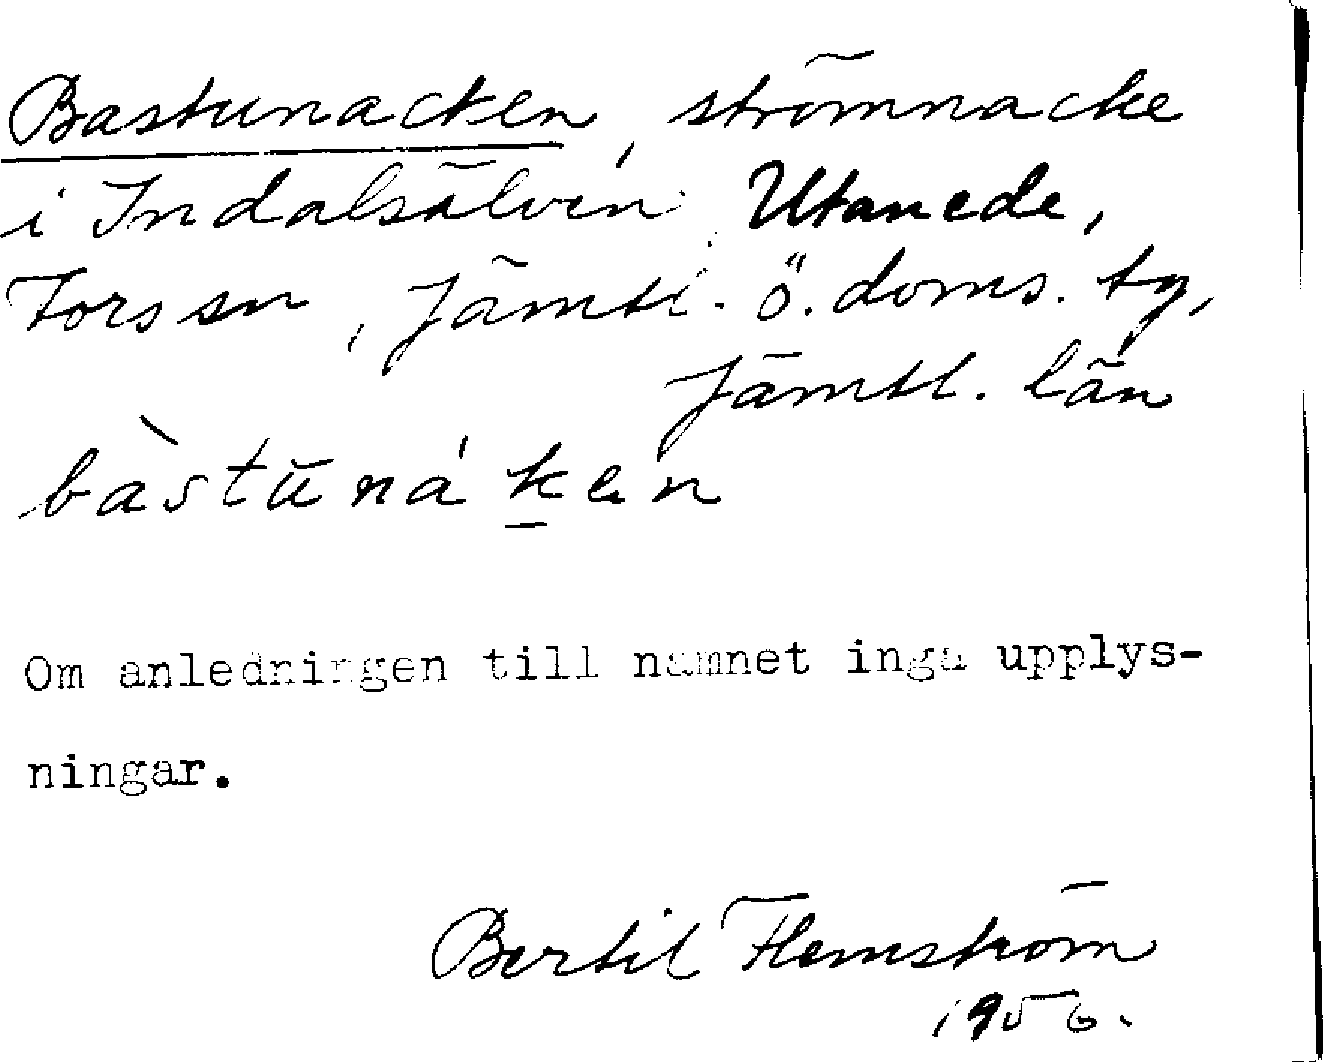 Bastunacken, strömnacke
i Indalsälven, Utanede,
Fors sn, Jämtl. ö. doms. tg,
Jämtl. län
bàstŭnáken
Om anledningen till namnet inga upplys-
ningar.
Bertil Flemström
1956.